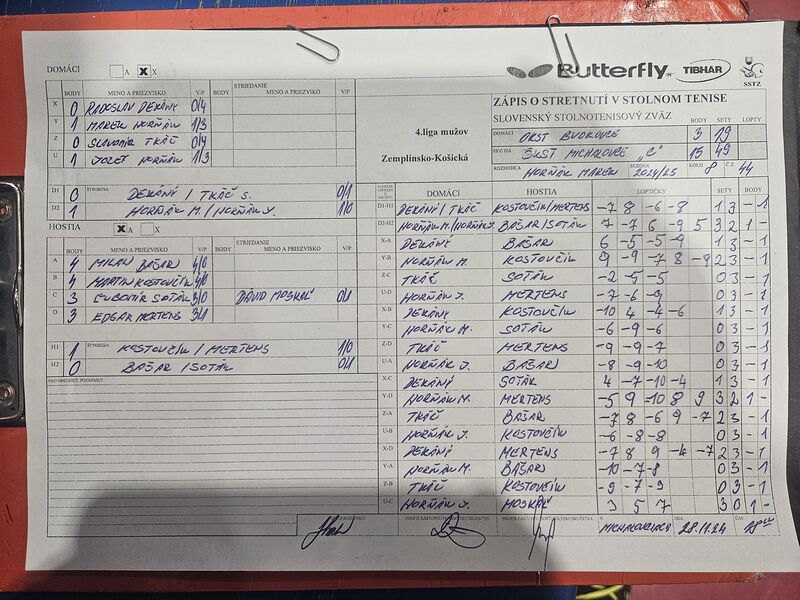 DOMÁCI A X X
Butterfly TIBHAR SSTZ
BODY MENO A PRIEZVISKO V/P BODY STRIEDANIE MENO A PRIEZVISKO V/P
X 0 RADOSLAV DEKÁNY 0/4
Y 1 MAREK HORŇÁK 1/3
Z 0 SLAVOMÍR TKÁČ 0/4
U 1 JOZEF HORŇÁK 1/3
D1 0 ŠTVORHRA DEKÁNY / TKÁČ S. 0/1
D2 1 HORŇÁK M. / HORŇÁK J. 1/0
HOSTIA A X X
BODY MENO A PRIEZVISKO V/P BODY STRIEDANIE MENO A PRIEZVISKO V/P
A 4 MILAN BAŠAR 4/0
B 4 MARTIN KOSTOVČÍK 4/0
C 3 ĽUBOMÍR SOTÁK 3/0 DÁVID MOSKAĽ 0/1
D 3 EDGAR MERTENS 3/1
H1 1 ŠTVORHRA KOSTOVČÍK / MERTENS 1/0
H2 0 BAŠAR / SOTÁK 0/1
PRIPOMIENKY, POZNÁMKY
4.liga mužov
Zemplínsko-Košická
ZÁPIS O STRETNUTÍ V STOLNOM TENISE
SLOVENSKÝ STOLNOTENISOVÝ ZVÄZ BODY SETY LOPTY
DOMÁCI OKST BUDKOVCE 3 19
HOSTIA ŠKST MICHALOVCE „C" 15 49
ROZHODCA HORŇÁK MAREK SEZÓNA 2024/25 KOLO 8 Č.Z. 44
DOMÁCI HOSTIA LOPTIČKY SETY BODY
D1-H1 DEKÁNY / TKÁČ KOSTOVČÍK/MERTENS -7 8 -6 -8 1 3 - 1
D2-H2 HORŇÁK M./HORŇÁK J. BAŠAR/SOTÁK 7 -7 6 -9 5 3 2 1 -
X-A DEKÁNY BAŠAR 6 -5 -5 -9 1 3 - 1
Y-B HORŇÁK M. KOSTOVČÍK 9 -9 -7 8 -9 2 3 - 1
Z-C TKÁČ SOTÁK -2 -5 -5 0 3 - 1
U-D HORŇÁK J. MERTENS -7 -6 -9 0 3 - 1
X-B DEKÁNY KOSTOVČÍK -10 4 -4 -6 1 3 - 1
Y-C HORŇÁK M. SOTÁK -6 -9 -6 0 3 - 1
Z-D TKÁČ MERTENS -9 -9 -7 0 3 - 1
U-A HORŇÁK J. BAŠAR -8 -9 -10 0 3 - 1
X-C DEKÁNY SOTÁK 4 -7 -10 -4 1 3 - 1
Y-D HORŇÁK M. MERTENS -5 9 -10 8 9 3 2 1 -
Z-A TKÁČ BAŠAR -7 8 -6 9 -7 2 3 - 1
U-B HORŇÁK J. KOSTOVČÍK -6 -8 -8 0 3 - 1
X-D DEKÁNY MERTENS -7 8 9 -6 -7 2 3 - 1
Y-A HORŇÁK M. BAŠAR -10 -7 -8 0 3 - 1
Z-B TKÁČ KOSTOVČÍK -9 -7 -9 0 3 - 1
U-C HORŇÁK J. MOSKAĽ 9 5 7 3 0 1 -
V MICHALOVCIACH DŇA 28.11.24 ČAS